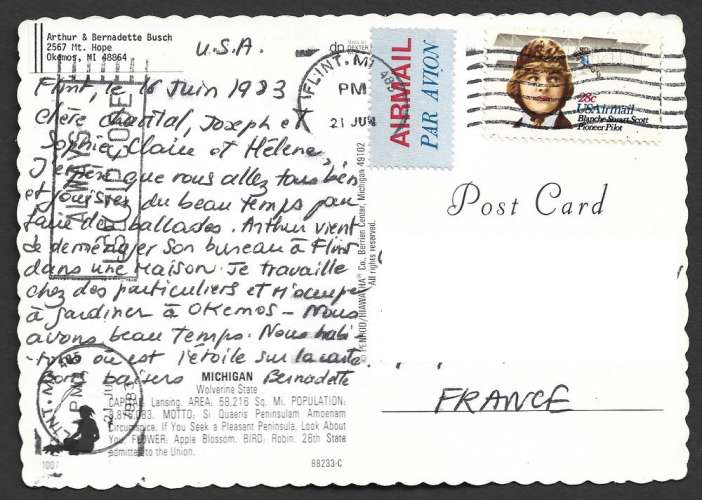 Arthur & Bernadette Busch
2567 Mt. Hope
Okemos, MI 48864
U.S.A.
Flint, le 16 Juin 1983
Chère Chantal, Joseph et
Sophie, Claire et Hélène,
J'espère que vous allez tous bien
et jouissez du beau temps pour
faire des ballades. Arthur vient
de déménager son bureau à Flint
dans une maison. Je travaille
chez des particuliers et m'occupe
à jardiner à Okemos - Nous
avons beau temps. Nous habi-
tons où est l'étoile sur la carte
Bons baisers Bernadette
MICHIGAN
Wolverine State
CAPITAL: Lansing. AREA: 58,216 Sq. Mi. POPULATION:
MOTTO: Si Quaeris Peninsulam Amoenam
Circumspice. If You Seek a Pleasant Peninsula, Look About
You. FLOWER: Apple Blossom. BIRD: Robin. 26th State
admitted to the Union.
88233-C
ALWAYS
USE ZIP CODE
FLINT, MI 485
PM
21 JUN
FLINT, MI 485
PM
1983
AIRMAIL
PAR AVION
28c
USAirmail
Blanche Stuart Scott
Pioneer Pilot
Post Card
FRANCE
© PENROD/HIAWATHA Co., Berrien Center, Michigan 49102
All rights reserved.